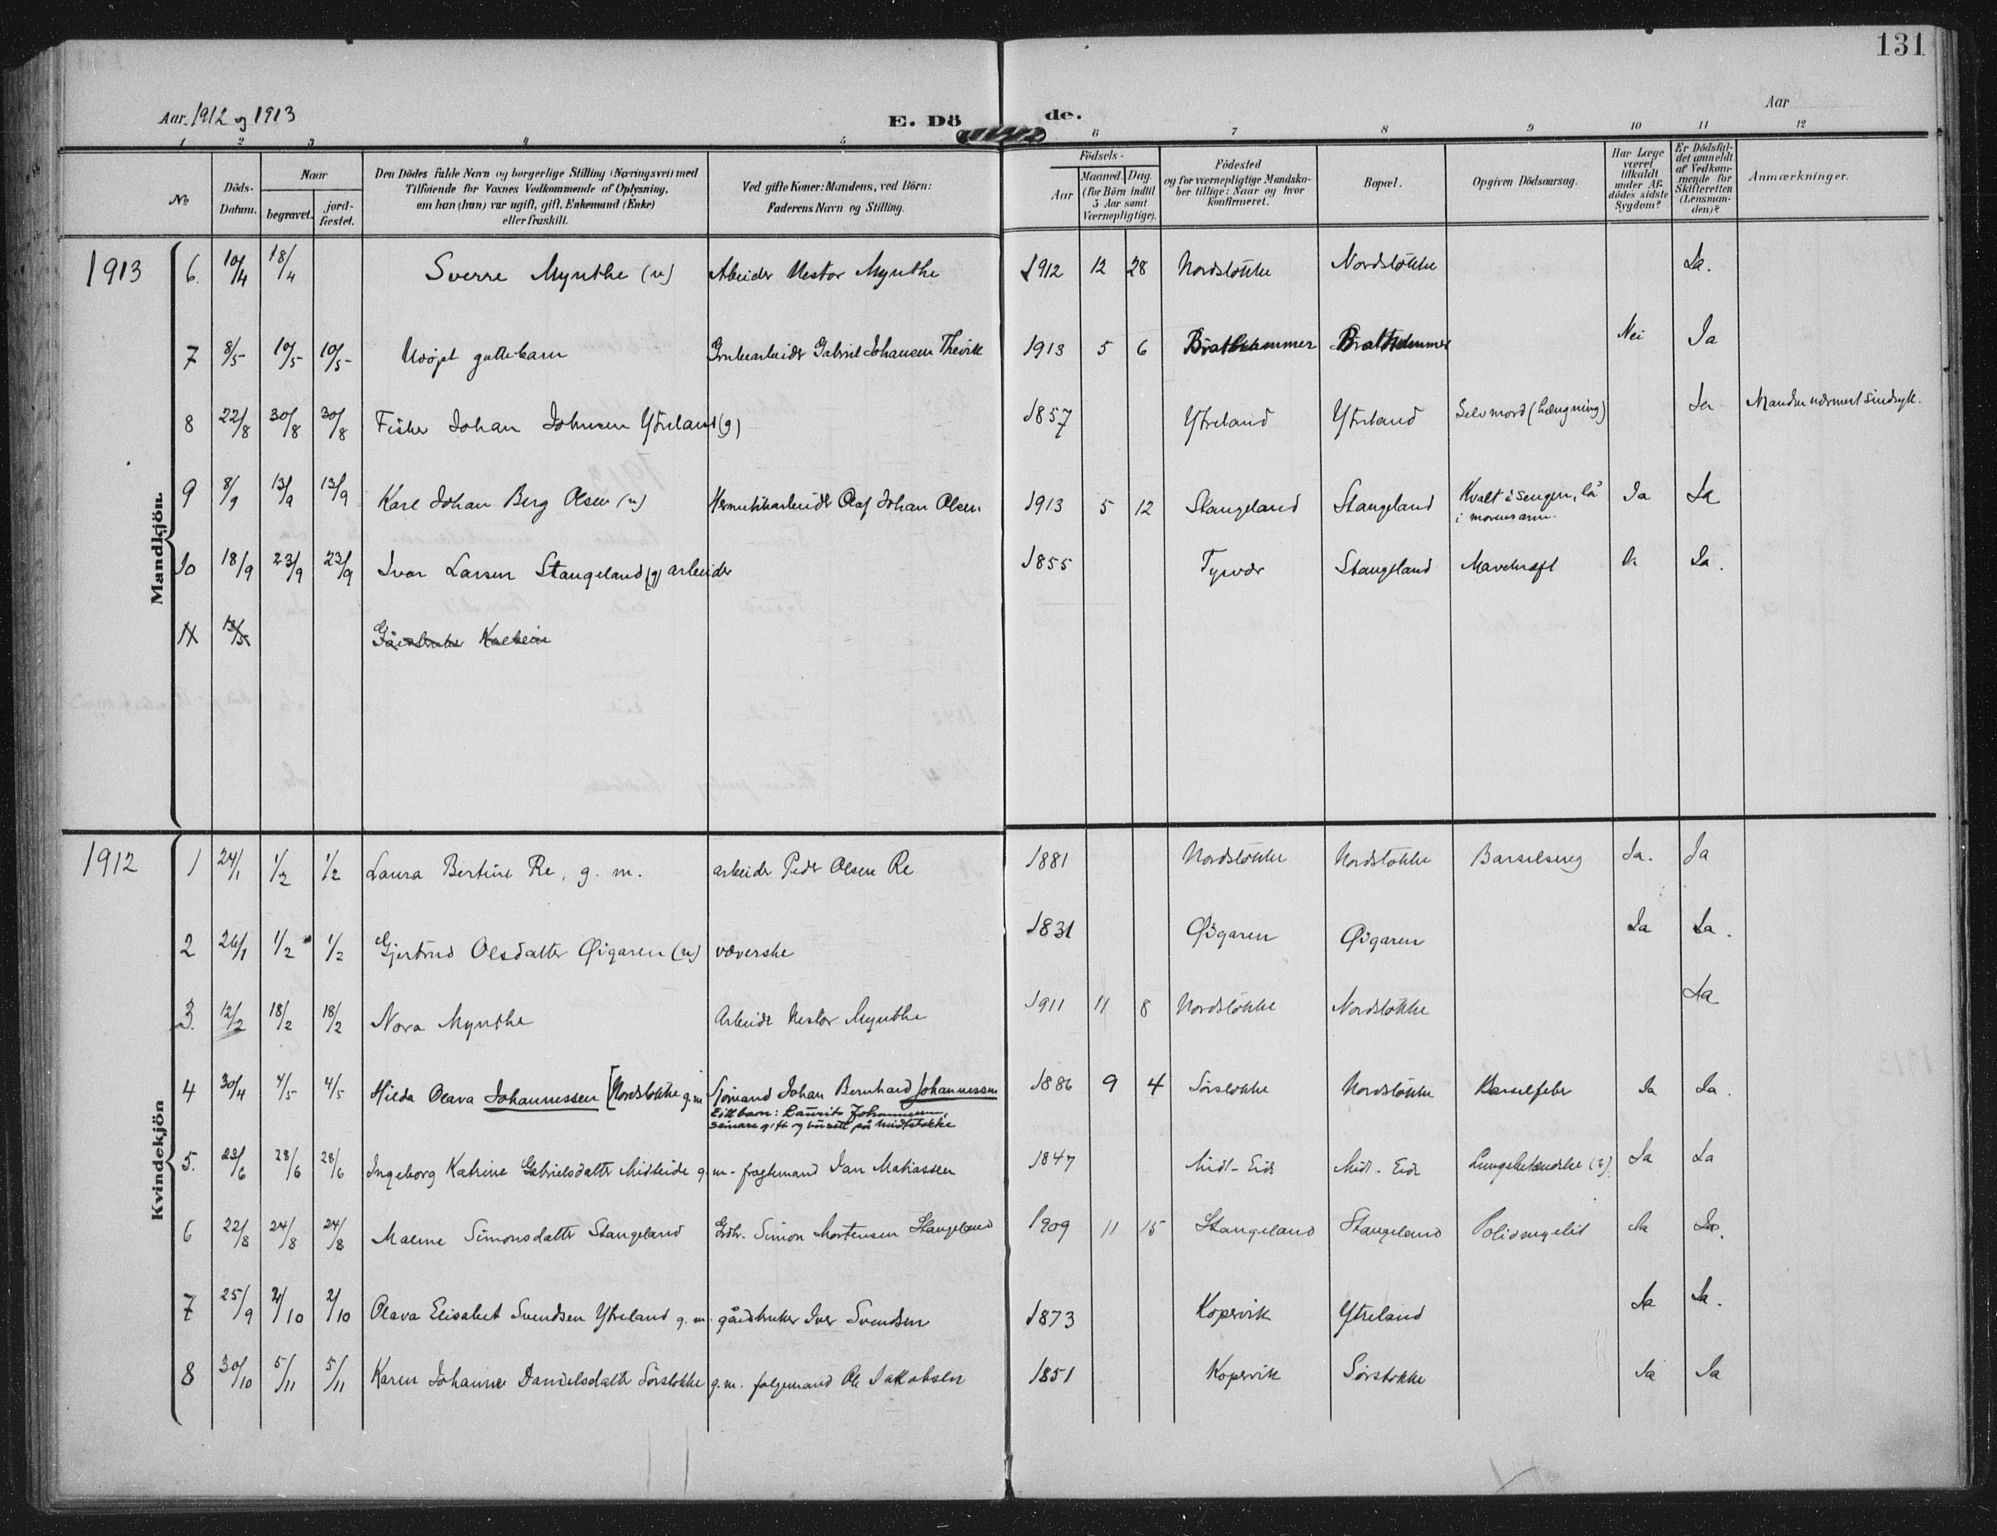 131
Aar. 1912 og 1913
E. Dö
de.
Aar
1 2 3 4 5 6 7 8 9 10 11 12
No
Döds-
Datum.
Naar
begravet.
jord-
fæstet.
Den Dödes fulde Navn og borgerlige Stilling (Næringsvei) med
Tilföiende for Voxnes Vedkommende af Oplysning,
om han (hun) var ugift, gift, Enkemand (Enke)
eller fraskilt.
Ved gifte Koner: Mandens, ved Börn:
Faderens Navn og Stilling.
Födsels-
Aar
Maaned. Dag.
(for Börn indtil
5 Aar samt
Værnepligtige).
Födested
og for værnepligtige Mandska-
ber tillige: Naar og hvor
konfirmeret.
Bopæl.
Opgiven Dödsaarsag.
Har Læge
været
tilkaldt
under Af-
dödes sidste
Sygdom?
Er Dödsfal-
det anmeldt
af Vedkom-
mende for
Skifteretten
(Lensman-
den)?
Anmærkninger.
Mandkjön
1913 6. 10/4 18/4 Sverre Mynthe (u) Arbeider Nestor Mynthe 1912 12 28 Nordstokke Nordstokke Ja.
7 8/5 10/5 10/5 Udøpt guttebarn Grubearbeider Gabriel Johansen 1913 5 6 Bratthammer Bratthammer Nei Ja
8 22/8 30/8 30/8 Fisker Johan Johnsen Ytreland (g) 1857 Ytreland Ytreland Selvmord (hængning) Ja Manden nærmest sindsyk.
9 8/9 13/9 13/9 Karl Johan Berg Olsen (u) Hermetikkarbeider Olaf Johan Olsen 1913 5 12 Stangeland Stangeland Kvalt i sengen, lå
i morens arm. Ja Ja
10 18/9 23/9 23/9 Ivar Larsen Stangeland (g) arbeider 1855 Tysvær Stangeland Mavekræft Ja.
11 13/5 Gårdbruker
Kvindekjön
1912 1 24/1 1/2 1/2 Laura Bertine Re, g. m. arbeider Peder Olsen Re 1881 Nordstokke Nordstokke Barselseng Ja. Ja
2 26/1 1/2 1/2 Gjertrud Olsdatter Øigaren (u) væverske 1831 Øigaren Øigaren Ja Ja.
3. 12/2 18/2 18/2 Nora Mynthe Arbeider Nestor Mynthe 1911 11 8 Nordstokke Nordstokke Ja
4 30/4 4/5 4/5 Hilda Olava Johannessen [Nordstokke g.m. Sjømand Johan Bernhard Johannessen 1886 9 4 Sørstokke Nordstokke Barselfeber Ja Ja.
Ett barn: Laurits Johannessen,
seinare gift og busett på Midtstokke
5. 23/6 28/6 28/6 Ingeborg Katrine Gabrielsdatter Midteide g.m. Jan Matiassen 1847 Midt-Eide Midt-Eide Ja Ja
6 22/8 24/8 24/8 Malene Simonsdatter Stangeland Grdbr. Simon Mortensen Stangeland 1909 11 15 Stangeland Stangeland Poliomyelit Ja Ja.
7 25/9 2/10 2/10 Olava Elisabet Svendsen Ytreland g. m. gårdbruker Iver Svendsen 1873 Kopervik Ytreland Ja Ja.
8 30/10 5/11 5/11 Karen Johanne Danielsdatter Sørstokke g.m. følgemand Ole Jakobsen 1851 Kopervik Sørstokke Ja Ja